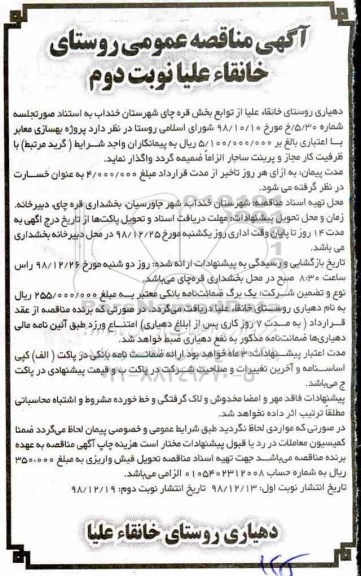 آگهی مناقصه عمومی روستای
خانقاء علیا نوبت دوم
دهیاری روستای خانقاء علیا از توابع بخش قره چای شهرستان خنداب به استناد صورتجلسه
شماره ۵/۳۰/خ مورخ ۹۸/۱۰/۱۰ شورای اسلامی روستا در نظر دارد پروژه بهسازی معابر
با اعتباری بالغ بر ۵/۱۰۰/۰۰۰/۰۰۰ ریال به پیمانکاران واجد شرایط ( گرید مرتبط) با
ظرفیت کار مجاز و پرینت ساجار الزاماً ضمیمه گردد واگذار نماید.
مدت پیمان: به ازای هر روز تاخیر از مدت قرارداد مبلغ ۴/۰۰۰/۰۰۰ به عنوان خسارت
در نظر گرفته می شود.
محل تهیه اسناد مناقصه: شهرستان خنداب، شهر جاورسیان، بخشداری قره چای، دبیرخانه.
زمان و محل تحویل پیشنهادات: مهلت دریافت اسناد و تحویل پاکت‌ها از تاریخ درج آگهی به
مدت ۱۴ روز تا پایان وقت اداری روز یکشنبه مورخ ۹۸/۱۲/۲۵ در محل دبیرخانه بخشداری
می باشد.
تاریخ بازگشایی و رسیدگی به پیشنهادات ارائه شده: روز دو شنبه مورخ ۹۸/۱۲/۲۶ راس
ساعت ۸:۳۰ صبح در محل بخشداری قره‌چای می‌باشد.
نوع و تضمین شرکت: یک برگ ضمانت‌نامه بانکی معتبر به مبلغ ۲۵۵/۰۰۰/۰۰۰ ریال
به نام دهیاری روستای خانقاء علیا دریافت می‌گردد. در صورتی که برنده مناقصه از عقد
قرارداد ( به مدت ۷ روز کاری پس از ابلاغ دهیاری) امتناع ورزد طبق آئین نامه مالی
دهیاری‌ها ضمانت‌نامه مذکور به نفع دهیاری ضبط خواهد شد.
مدت اعتبار پیشنهادات: ۳ ماه خواهد بود ارائه ضمانت نامه بانکی در پاکت ( الف) کپی
اساسنامه و آخرین تغییرات و صلاحیت شرکت در پاکت ب و قیمت پیشنهادی در پاکت
ج می‌باشد.
پیشنهادات فاقد مهر و امضا مخدوش و لاک گرفتگی و خط خورده مشروط و اشتباه محاسباتی
مطلقا ترتیب اثر داده نخواهد شد.
در صورتی که مواردی لحاظ نگردید طبق شرایط عمومی و خصوصی پیمان لحاظ می‌گردد ضمنا
کمیسیون معاملات در رد یا قبول پیشنهادات مختار است هزینه چاپ آگهی مناقصه به عهده
برنده مناقصه می‌باشد جهت تهیه اسناد مناقصه تحویل فیش واریزی به مبلغ ۳۵۰۰۰۰
ریال به شماره حساب ۰۱۰۵۴۰۲۳۱۲۰۰۸ الزامی می‌باشد.
تاریخ انتشار نوبت اول: ۹۸/۱۲/۱۳ تاریخ انتشار نوبت دوم: ۹۸/۱۲/۱۹
دهیاری روستای خانقاء علیا